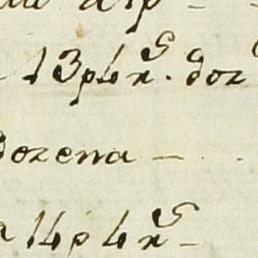 13 p 4 r.s doz
dozena —
a 14 p 4 r.s —